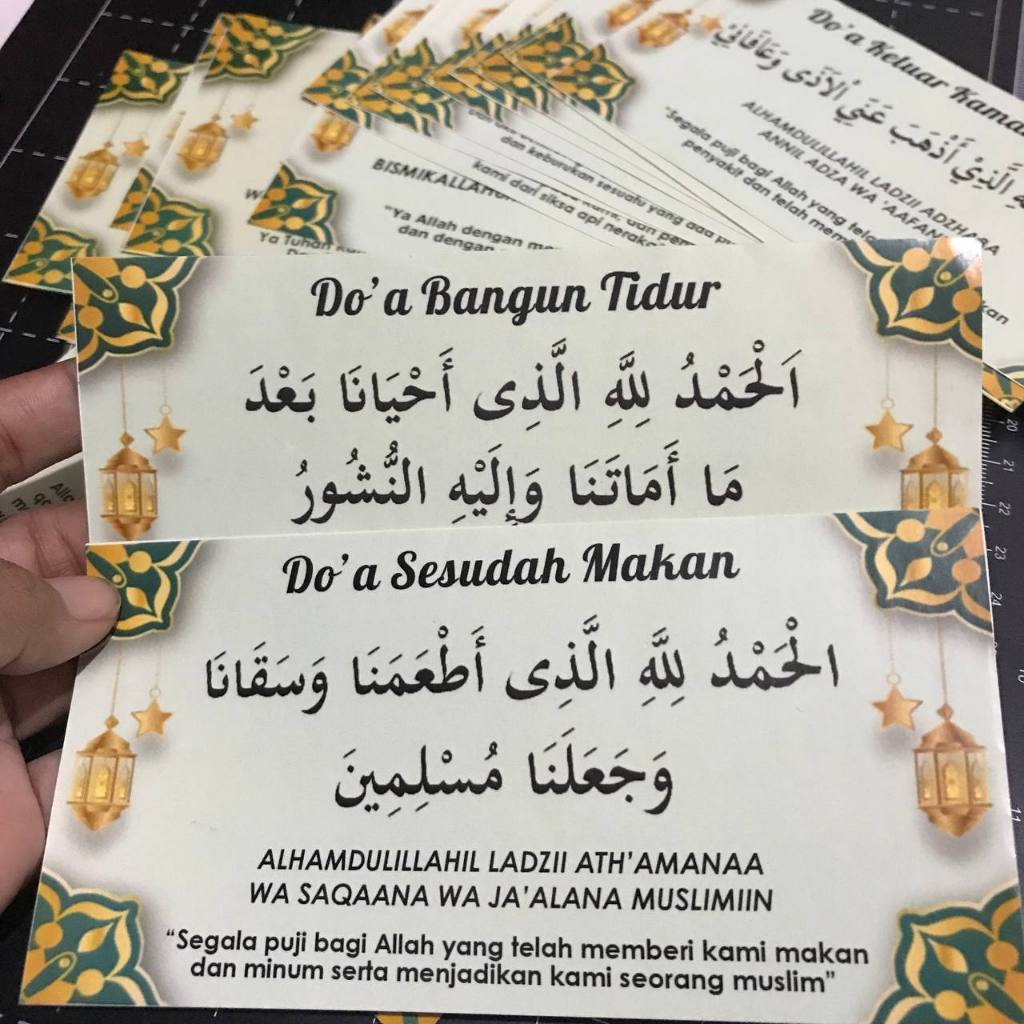 Do'a Keluar Kama
الَّذِيْ أَذْهَبَ عَنِّي الْأَذَى وَعَافَانِيْ
ALHAMDULILLAHIL LADZII ADZHABA
ANNIL ADZA WA 'AAFAN
"Segala puji bagi Allah yang tela
penyakit dan telah mem
dan keburukan sesuatu yang ada
kami dari siksa api neraka
BISMIKALLA
"Ya Allah dengan me
dan dengan
Ya Tuhan
Do'a Bangun Tidur
اَلْحَمْدُ لِلَّهِ الَّذِى أَحْيَانَا بَعْدَ
مَا أَمَاتَنَا وَإِلَيْهِ النُّشُورُ
Do'a Sesudah Makan
الْحَمْدُ لِلَّهِ الَّذِى أَطْعَمَنَا وَسَقَانَا
وَجَعَلَنَا مُسْلِمِينَ
ALHAMDULILLAHIL LADZII ATH'AMANAA
WA SAQAANA WA JA'ALANA MUSLIMIIN
"Segala puji bagi Allah yang telah memberi kami makan
dan minum serta menjadikan kami seorang muslim"
20
21
22
23
24